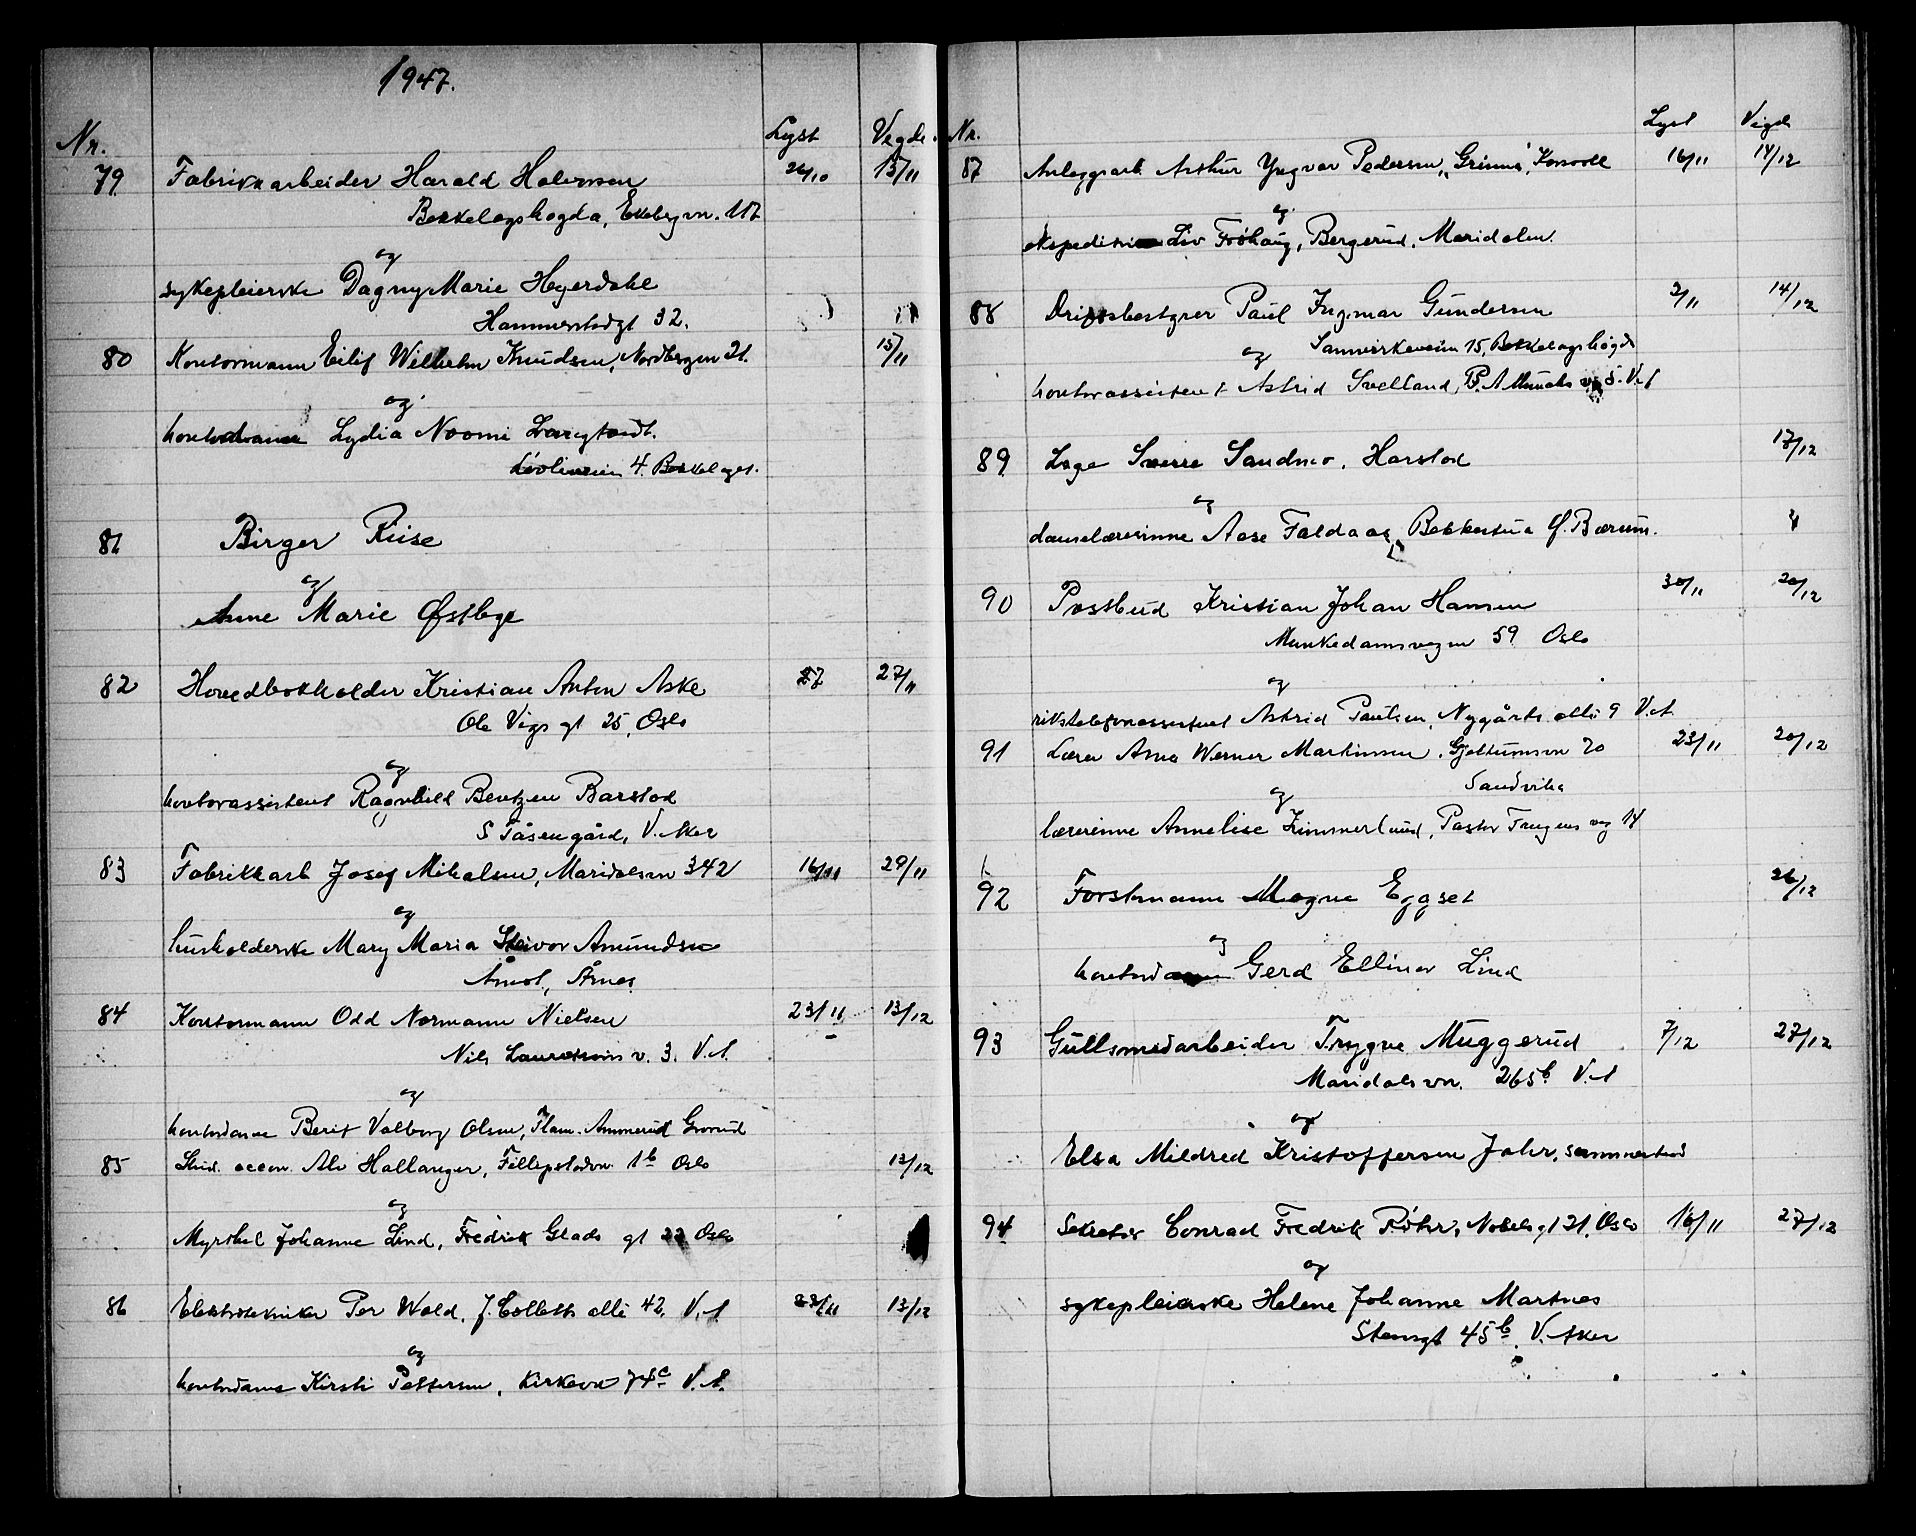 1947.
Nr. Lyst Vegde.
79 Fabrikkarbeider Harald Halvorsen 26/10 15/11
Bekkelagshøgda, Ekebergvn. 117
og
sykepleierske Dagny Marie Heyerdahl
Hammerstadgt 32.
80 Kontormann Eilif Wilhelm Knudsen, Nordbergvn 21. 15/11
og
kontordame Lydia Noomi Langtvedt.
4. Bekkelaget.
81 Birger Riise
og
Anne Marie Østbye
82 Hovedbokholder Kristian Anton Aske 27/11
Ole Vigs gt 25, Oslo
og
kontorassistent Ragnhild Bentzen Barstad
S Tåsengård, V. Aker
83 Fabrikkarb Josef Mikalsen, Maridalsvn 342 16/11 29/11
og
husholderske Mary Maria Steivor Amundsen
Årnes
84 Kontormann Odd Normann Nielsen 23/11 13/12
Nils Lauritssøns v. 3. V.A.
og
kontordame Berit Valborg Olsen, Flam. Ammerud Grorud
85 Stud. oecon. Alv Hallanger, Fillipstadvn 1b Oslo 13/12
og
Myrthel Johanne Lind, Fredrik Glads gt 22 Oslo
86 Elektrotekniker Per Wold, J. Colletts allé 42. V.A 23/11 13/12
og
kontordame Kirsti Pettersen, Kirkevn 74c V.A.
Nr. Lyst Vigd
87 Anleggsarb Arthur Yngvar Pedersen, "Grinna", Korsvoll 16/11 14/12
og
ekspeditrise Liv Frøhaug, Bergerud, Maridalen.
88 Driftsbestyrer Paul Ingmar Gundersen 2/11 14/12
og Samvirkeveien 15, Bekkelagshøgda
kontorassistent Astrid Svelland, P. A Munchs v. 5. V.A
89 Lege Sverre Sandmo, Harstad 17/12
og
danselærerinne Aase Faldaas, Bekkestua f. Bærum.
90 Postbud Kristian Johan Hansen 30/11 20/12
Munkedamsveien 59 Oslo
og
rikstelefonassistent Astrid Paulsen, Nygårds allé 9 V.A.
91 Lærer Arne Werner Martinsen, Gjettumsvn 70 23/11 20/12
Sandvika
og
lærerinne Annelise Zimmerlund, Pastor Fangens vg 14
92 Forstmann Magne Eggset 26/12
og
kontordame Gerd Ellinor Lind
93 Gullsmedarbeider Trygve Muggerud 7/12 27/12
Maridalsvn. 265b V.A
og
Elsa Mildred Kristoffersen Jahr,
94 Sekretær Conrad Fredrik Røhr, Nobels gt 21, Oslo 16/11 27/12
og
sykepleierske Helene Johanne Martnes
Stensgt 45b, V. Aker